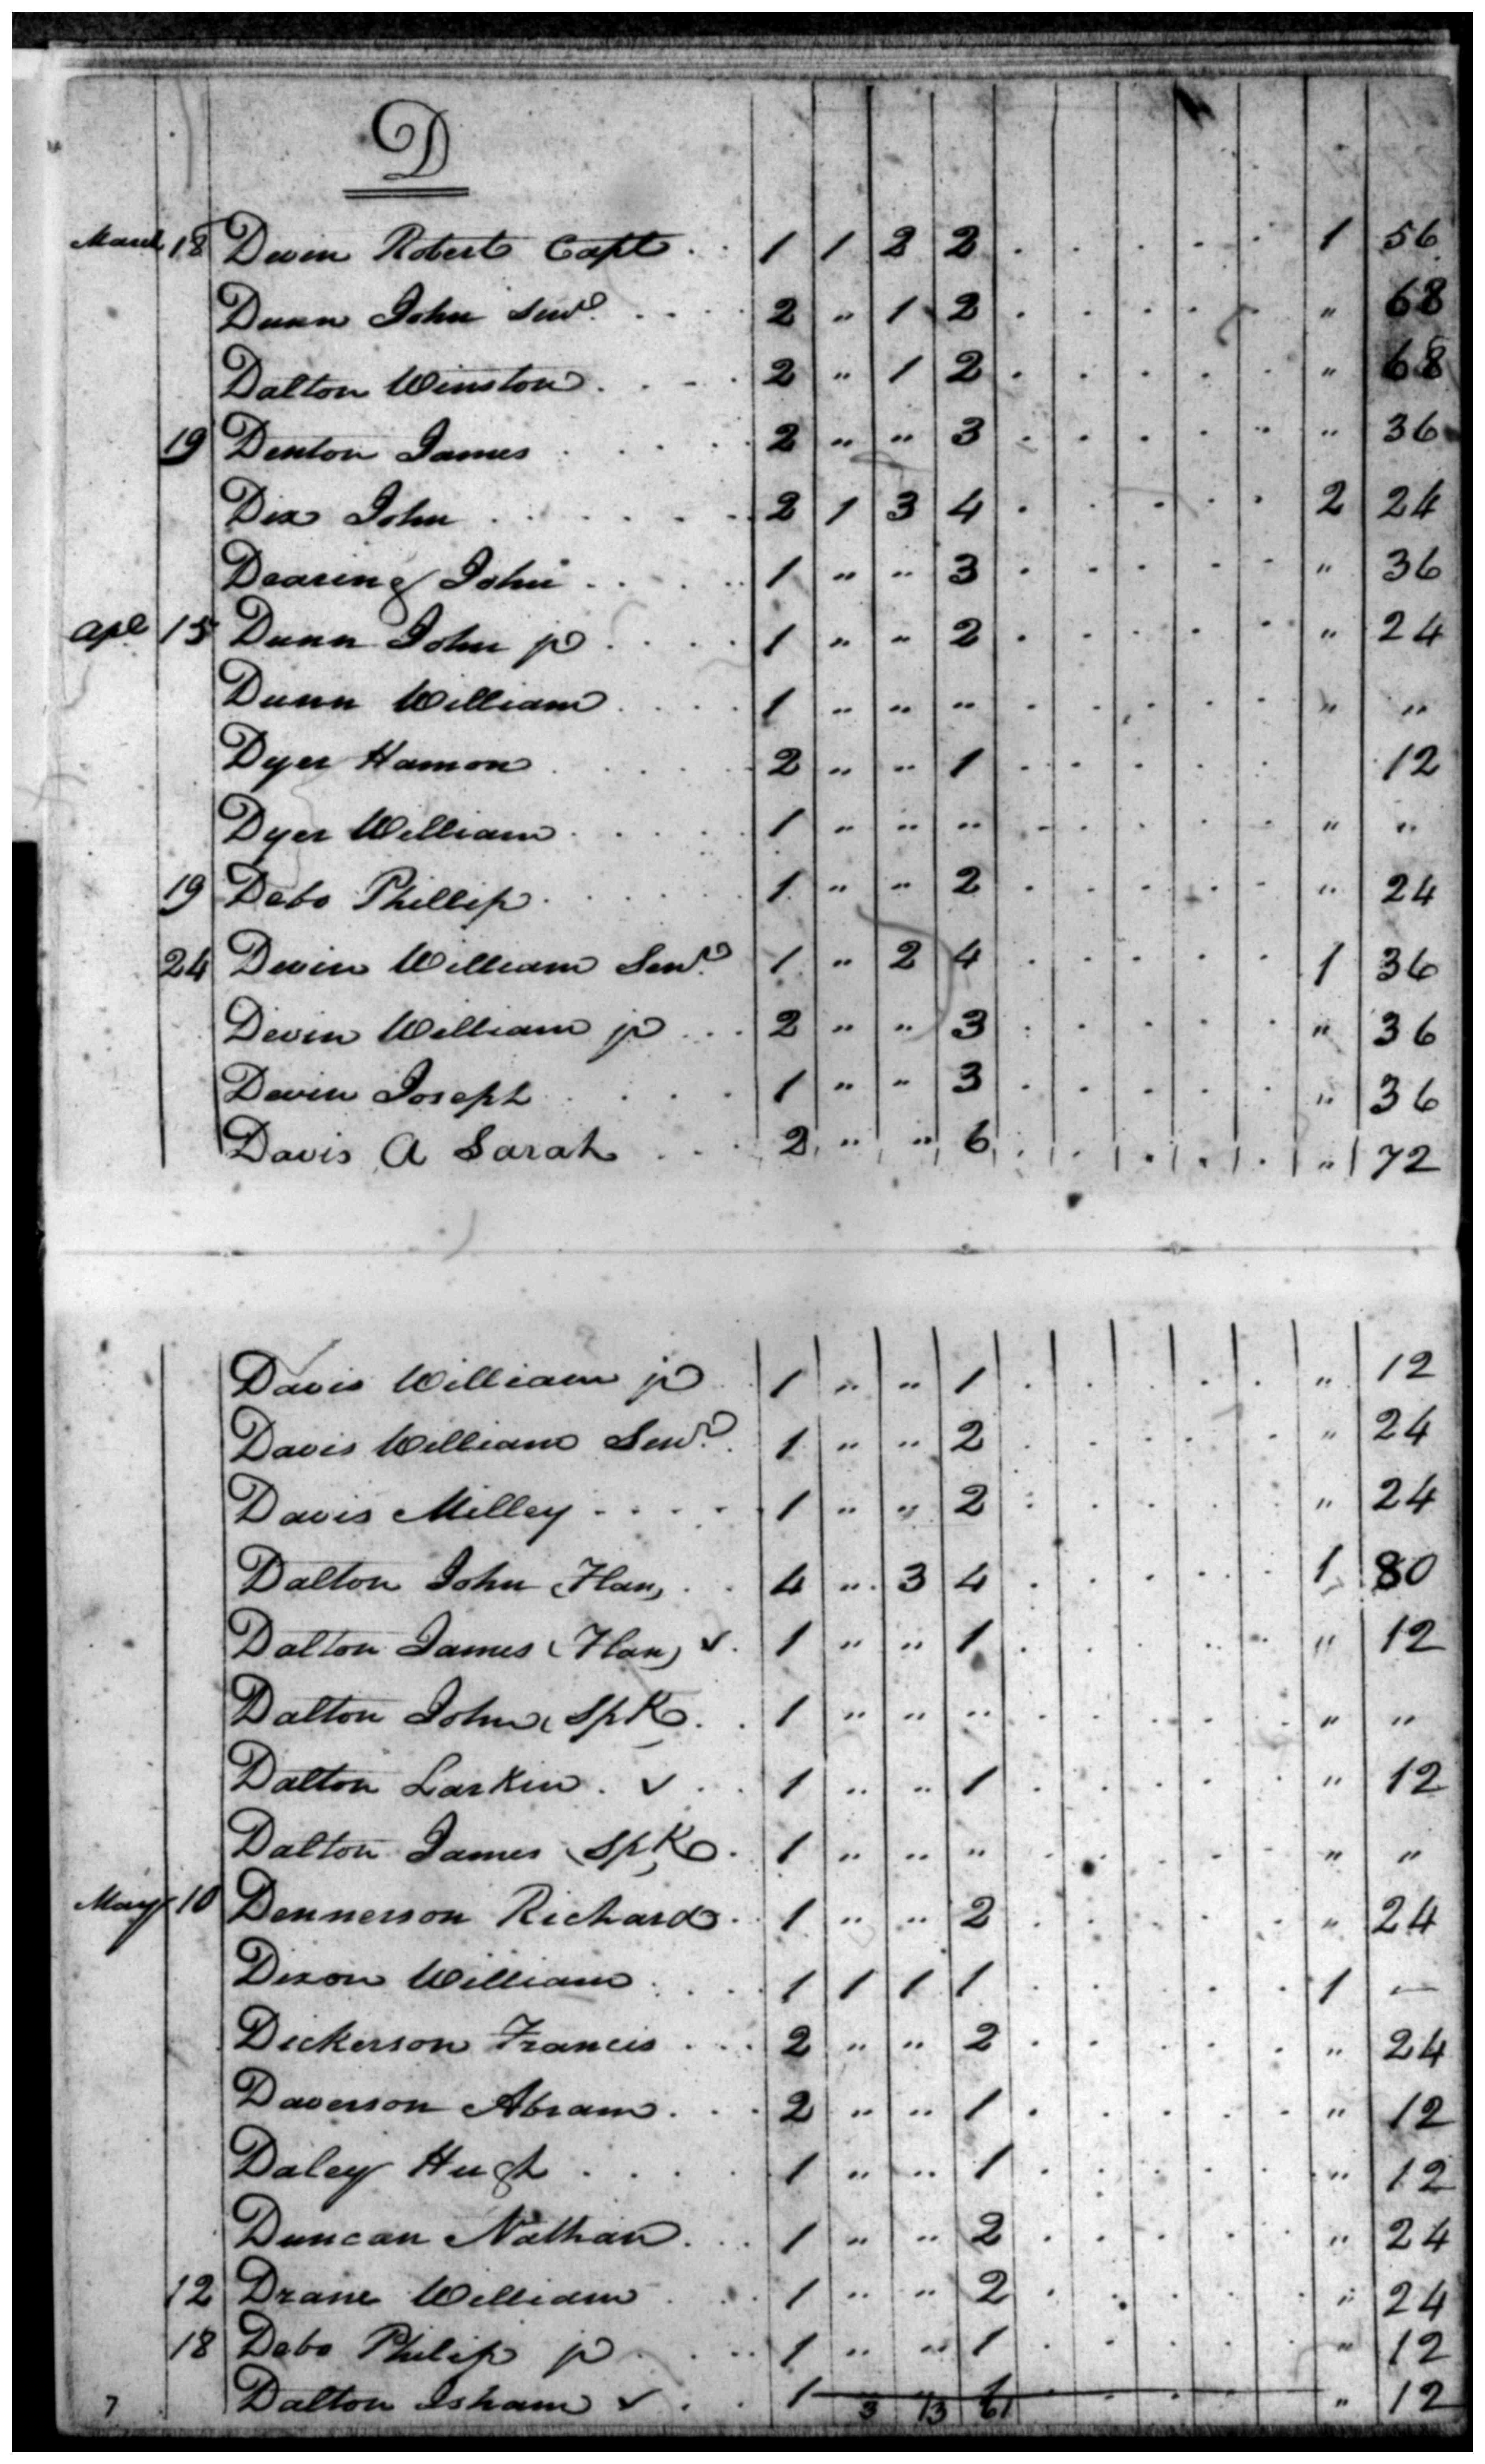 D
March 18 Devin Robert Capt . . 1 1 2 2 . . . . . 1 56
Dunn John Senr. . . . 2 " 1 2 . . . . . " 68
Dalton Winston . . . . 2 " 1 2 . . . . . " 68
19 Denton James . . . . 2 " " 3 . . . . . " 36
Dix John . . . . . . 2 1 3 4 . . . . . 2 24
Dearing John . . . . 1 " " 3 . . . . . " 36
Apl 15 Dunn John jr . . . . 1 " " 2 . . . . . " 24
Dunn William . . . . 1 " " " . . . . . " "
Dyer Hamon . . . . . 2 " " 1 . . . . . 12
Dyer William . . . . . 1 " " " . . . . . " "
19 Debo Phillip . . . . . 1 " " 2 . . . . . " 24
24 Devin William Senr. 1 " 2 4 . . . . . 1 36
Devin William jr . . . 2 " " 3 . . . . . " 36
Devin Joseph . . . . 1 " " 3 . . . . . " 36
Davis A Sarah . . . 2 " " 6 . . . . . " 72
Davis William jr . 1 " " 1 . . . . . " 12
Davis William Senr. 1 " " 2 . . . . . " 24
Davis Milley . . . . 1 " " 2 . . . . . " 24
Dalton John (Flan) . . 4 " 3 4 . . . . . 1 80
Dalton James (Flan) v . 1 " " 1 . . . . . " 12
Dalton John (SpK) . . 1 " " " . . . . . " "
Dalton Larkin . v . . 1 " " 1 . . . . . " 12
Dalton James (SpK) . 1 " " " . . . . . " "
May 10 Dennerson Richard . . 1 " " 2 . . . . . " 24
Dixon William . . . 1 1 1 1 . . . . . 1 —
Dickerson Francis . . . 2 " " 2 . . . . . " 24
Daverson Abram . . . 2 " " 1 . . . . . " 12
Daley Hugh . . . . 1 " " 1 . . . . . " 12
Duncan Nathan . . . 1 " " 2 . . . . . " 24
12 Drane William . . . 1 " " 2 . . . . . " 24
18 Debo Philip jr . . . 1 " " 1 . . . . . " 12
Dalton Isham v . . 1 1 . . . " 12
7 3 13 61